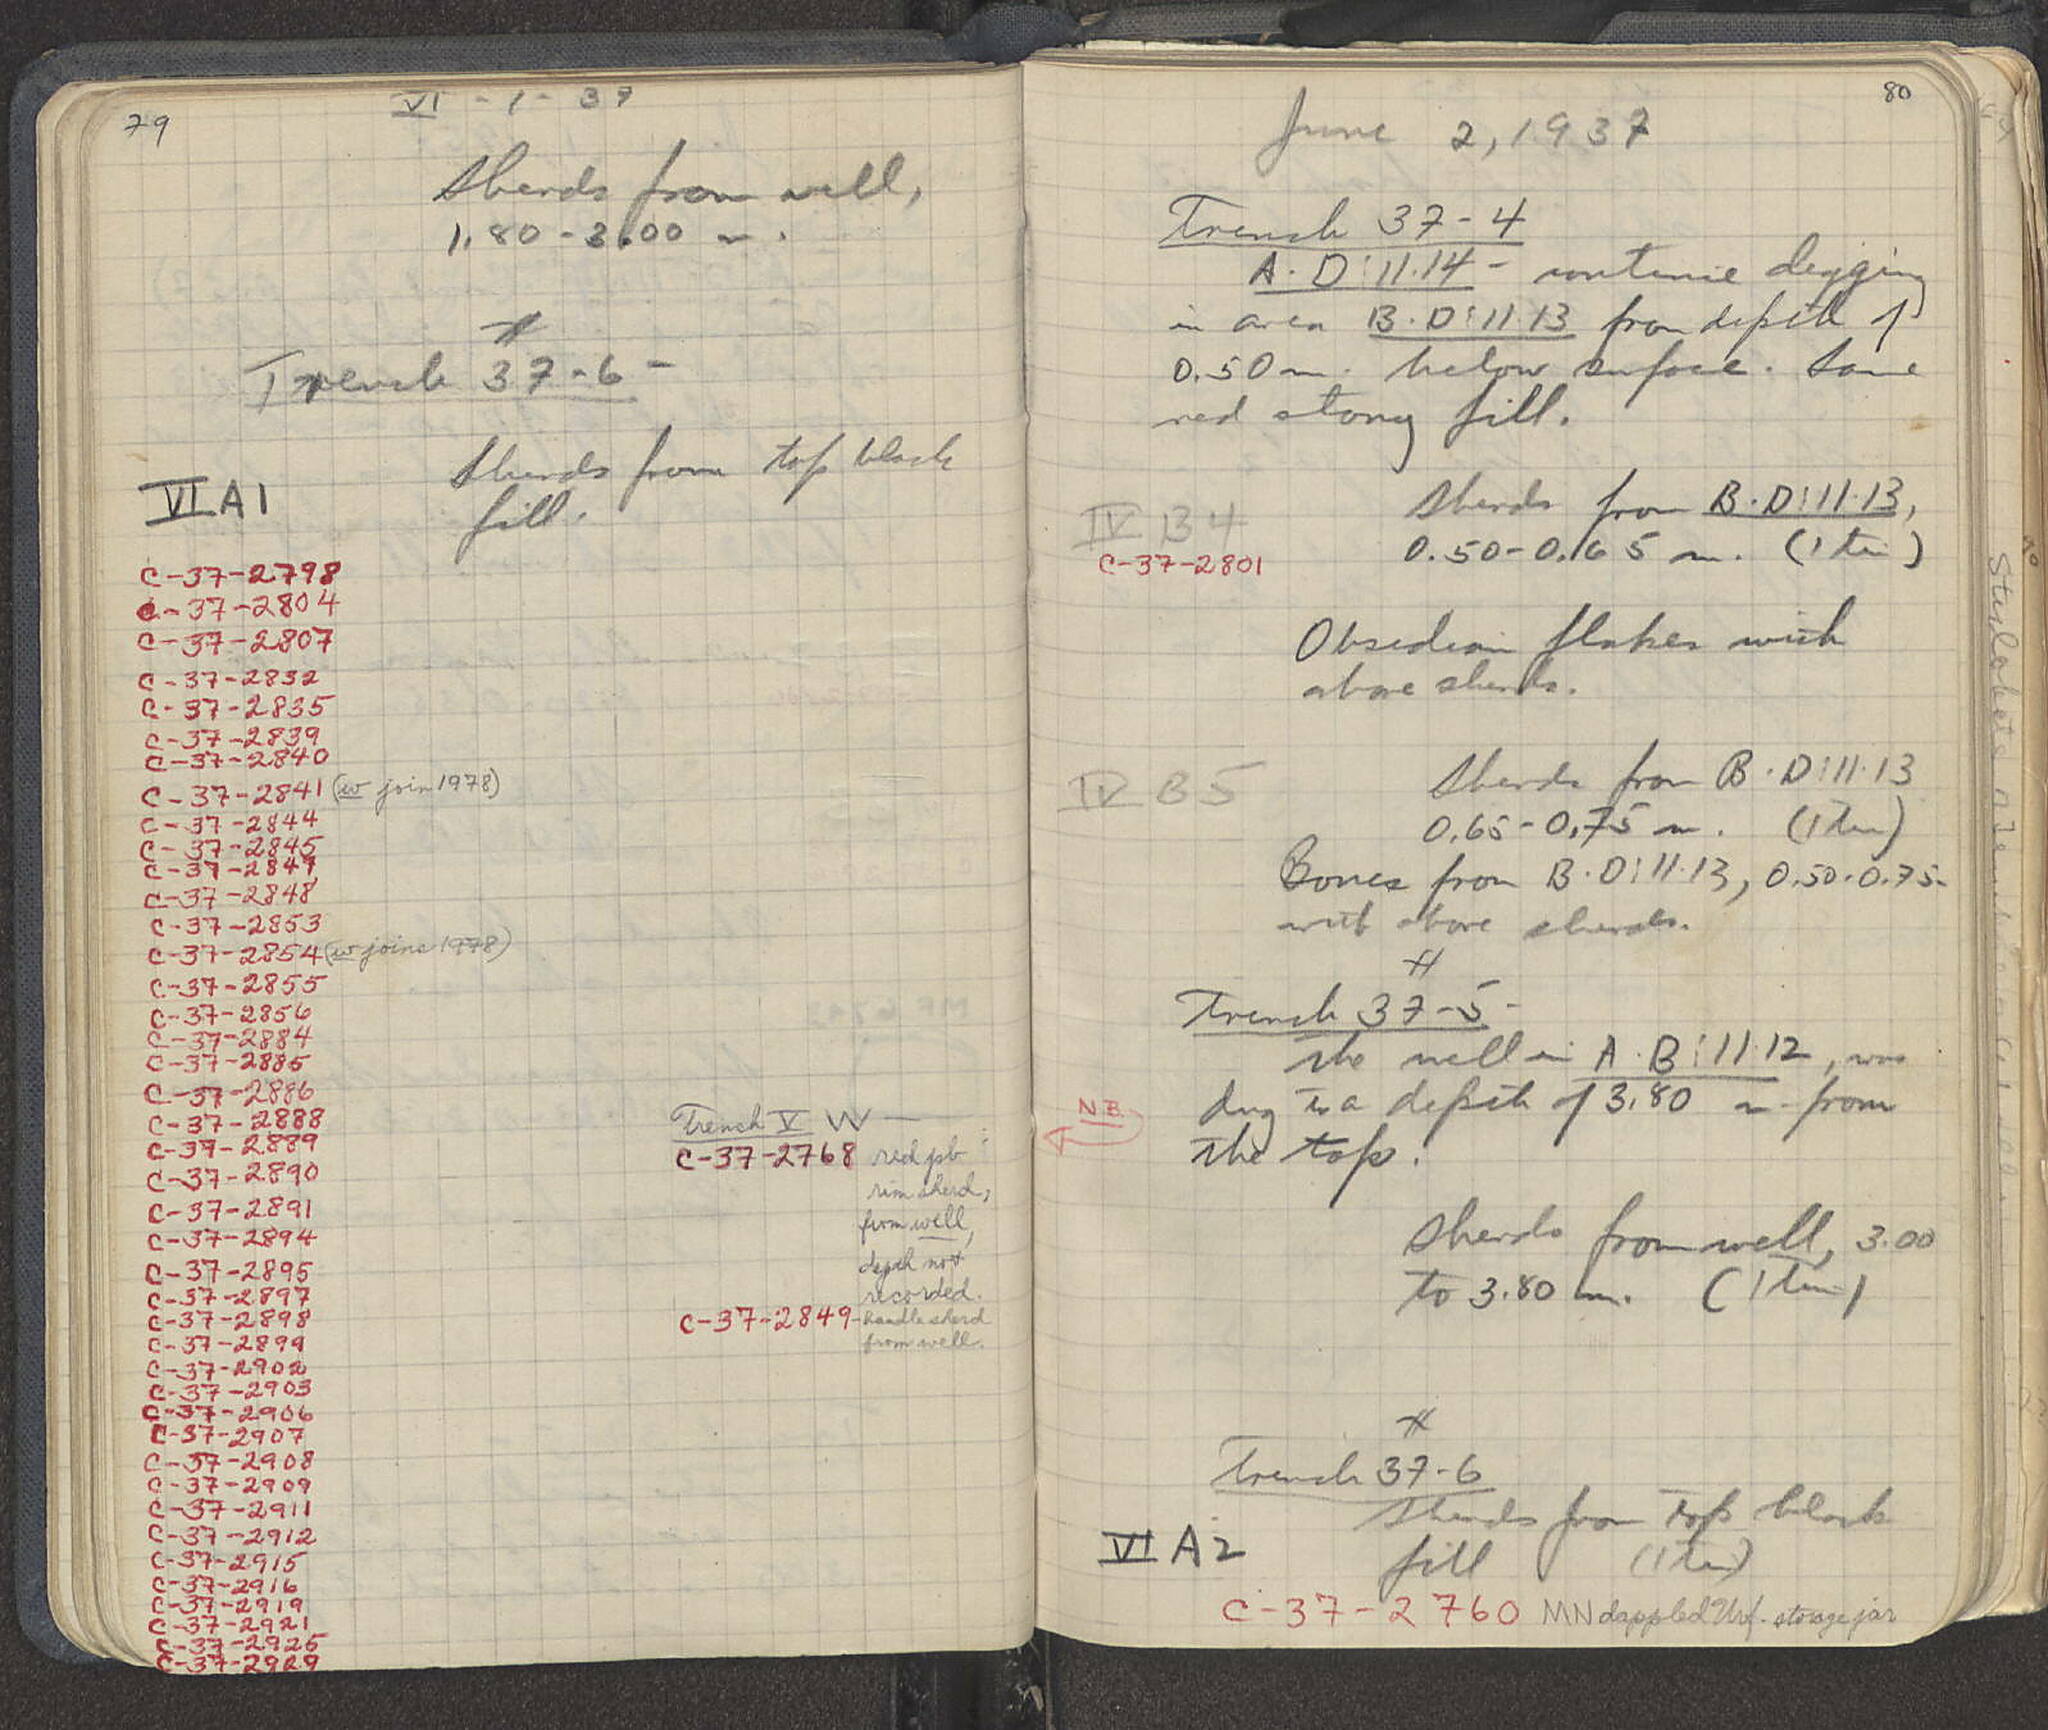 79
VI - 1 - 37
Sherds from well,
1.80 - 3.00 m.
Trench 37-6 -
Sherds from top black
fill.
VI A1
C-37-2798
C-37-2804
C-37-2807
C-37-2832
C-37-2835
C-37-2839
C-37-2840
C-37-2841 (w join 1978)
C-37-2844
C-37-2845
C-37-2847
C-37-2848
C-37-2853
C-37-2854 (w joins 1978)
C-37-2855
C-37-2856
C-37-2884
C-37-2885
C-37-2886
C-37-2888
C-37-2889
C-37-2890
C-37-2891
C-37-2894
C-37-2895
C-37-2897
C-37-2898
C-37-2899
C-37-2902
C-37-2903
C-37-2906
C-37-2907
C-37-2908
C-37-2909
C-37-2911
C-37-2912
C-37-2915
C-37-2916
C-37-2919
C-37-2921
C-37-2925
C-37-2929
Trench V W
C-37-2768 red pb
rim sherd,
from well,
depth not
recorded.
C-37-2849 - handle sherd
from well.
80
June 2, 1937
Trench 37-4
A·D:11·14 - continue digging
in area B·D:11·13 from depth of
0.50 m. below surface. Same
red stony fill.
IV B4
C-37-2801
Sherds from B·D:11·13,
0.50-0.65 m. (1 tin)
Obsedian flakes with
above sherds.
IV B5
Sherds from B·D:11·13
0.65-0.75 m. (1 tin)
Bones from B·D:11·13, 0.50-0.75-
with above sherds.
Trench 37-5 -
The well in A·B:11·12, was
dug to a depth of 3.80 m from
the top.
NB
Sherds from well, 3.00
to 3.80 m. (1 tin)
Trench 37-6
Sherds from top black
fill (1 tin)
VI A2
C-37-2760 MN dappled Urf. storage jar